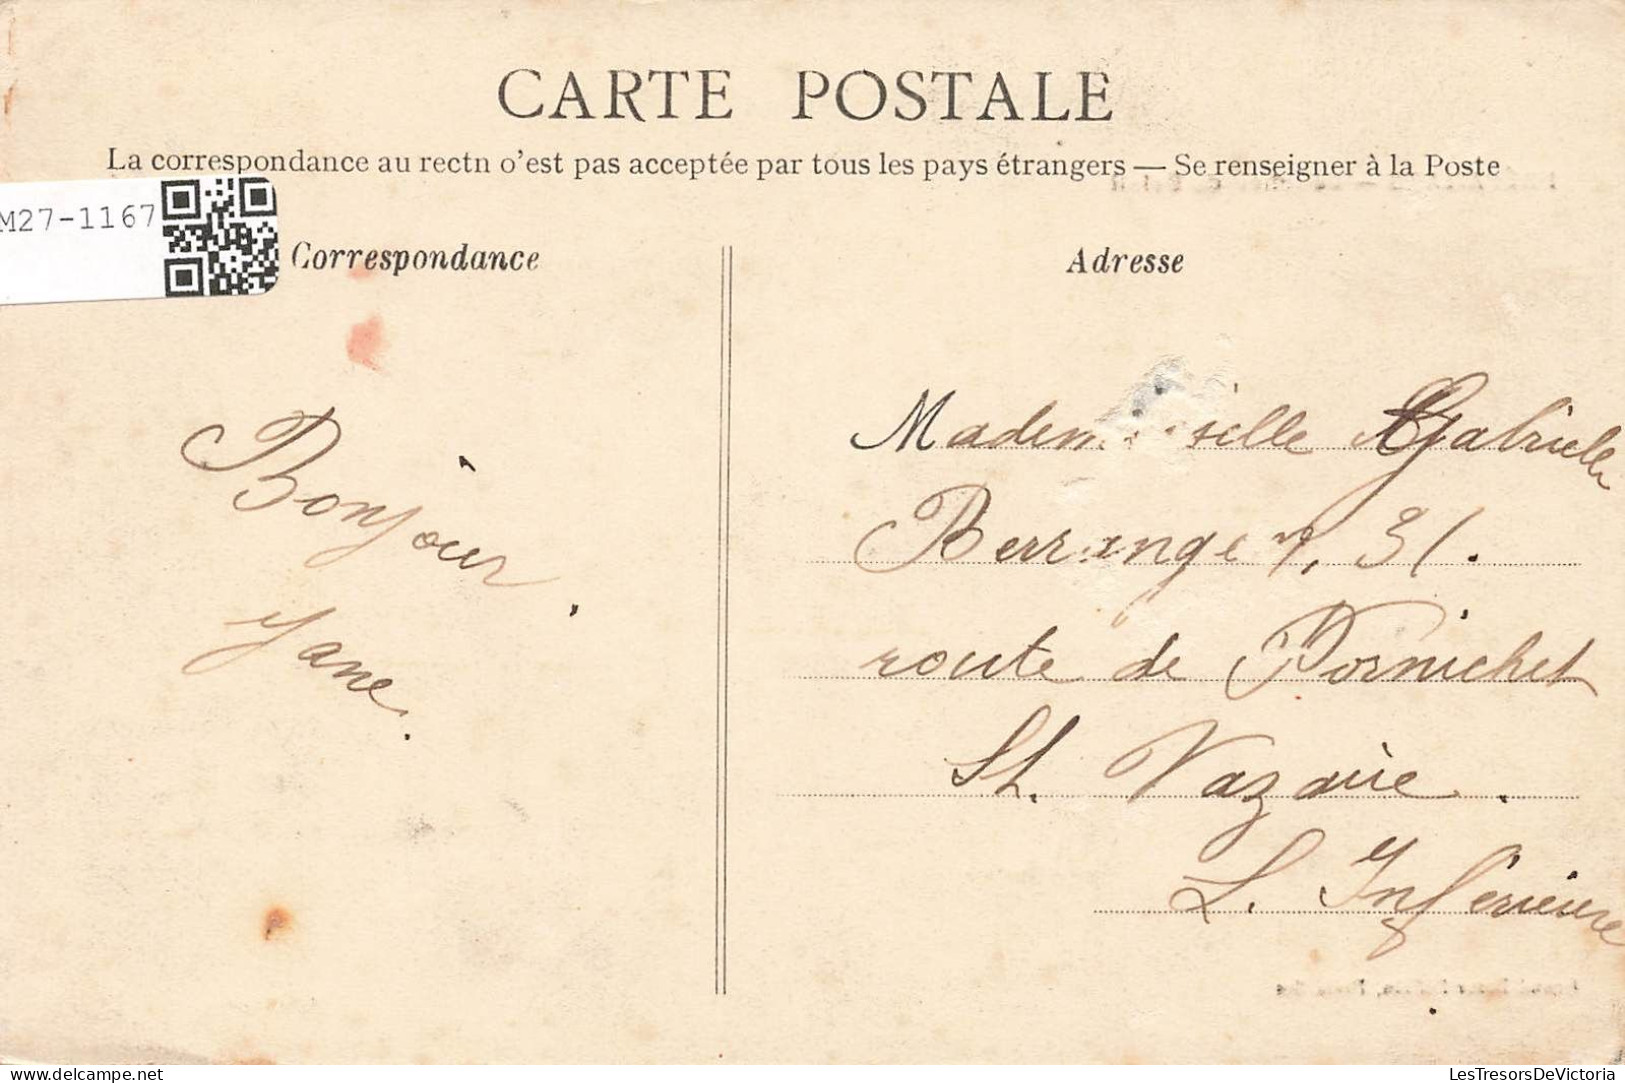 CARTE POSTALE
La correspondance au rectn o'est pas acceptée par tous les pays étrangers — Se renseigner à la Poste
M27-1167
Correspondance
Adresse
Bonjour.
Jane.
Mademoiselle Gabrielle
Berranger, 31.
route de Pornichet
St. Nazaire.
L. Inférieure
delcampe.net
LesTresorsDeVictoria